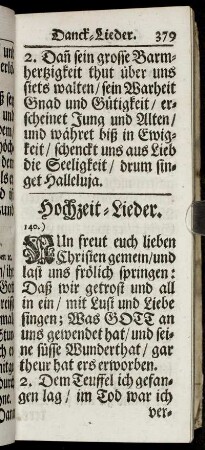 Danck-Lieder. 379
2. Dañ sein grosse Barm-
hertzigkeit thut über uns
stets walten/ sein Warheit
Gnad und Gütigkeit/ er-
scheinet Jung und Alten/
und währet biß in Ewig-
keit/ schenckt uns aus Lieb
die Seeligkeit/ drum sin-
get Halleluja.
Hochzeit-Lieder.
140.)
NUn freut euch lieben
Christen gemein/ und
last uns frölich springen:
Daß wir getrost und all
in ein/ mit Lust und Liebe
singen; Was GOTT an
uns gewendet hat/ und sei-
ne süsse Wunderthat/ gar
theur hat ers erworben.
2. Dem Teuffel ich gefan-
gen lag/ im Tod war ich
ver-